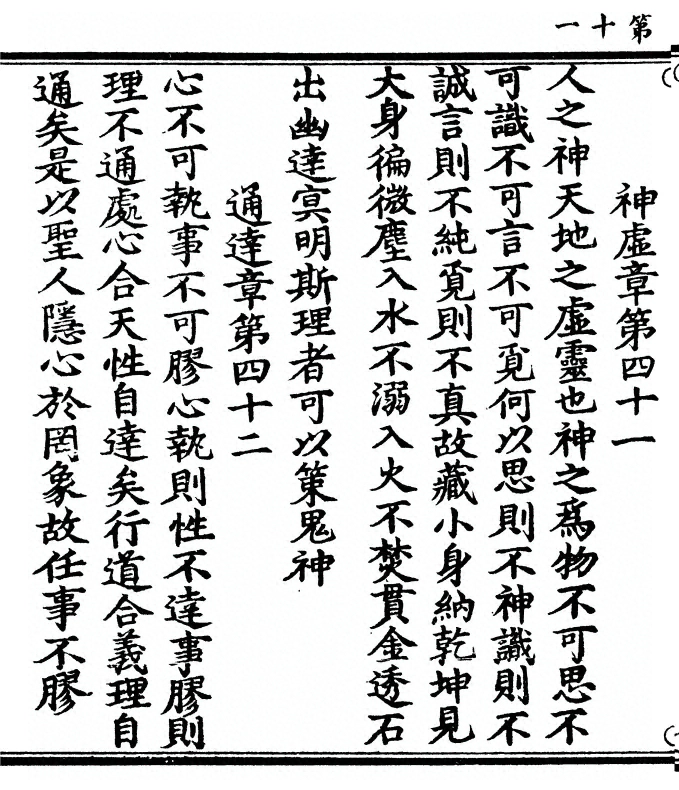 第十一
神虛章第四十一
人之神天地之虛靈也神之爲物不可思不
可識不可言不可覓何以思則不神識則不
誠言則不純覓則不真故藏小身納乾坤見
大身徧微塵入水不溺入火不焚貫金透石
出幽達冥明斯理者可以策鬼神
通達章第四十二
心不可執事不可膠心執則性不達事膠則
理不通處心合天性自達矣行道合義理自
通矣是以聖人隱心於罔象故任事不膠